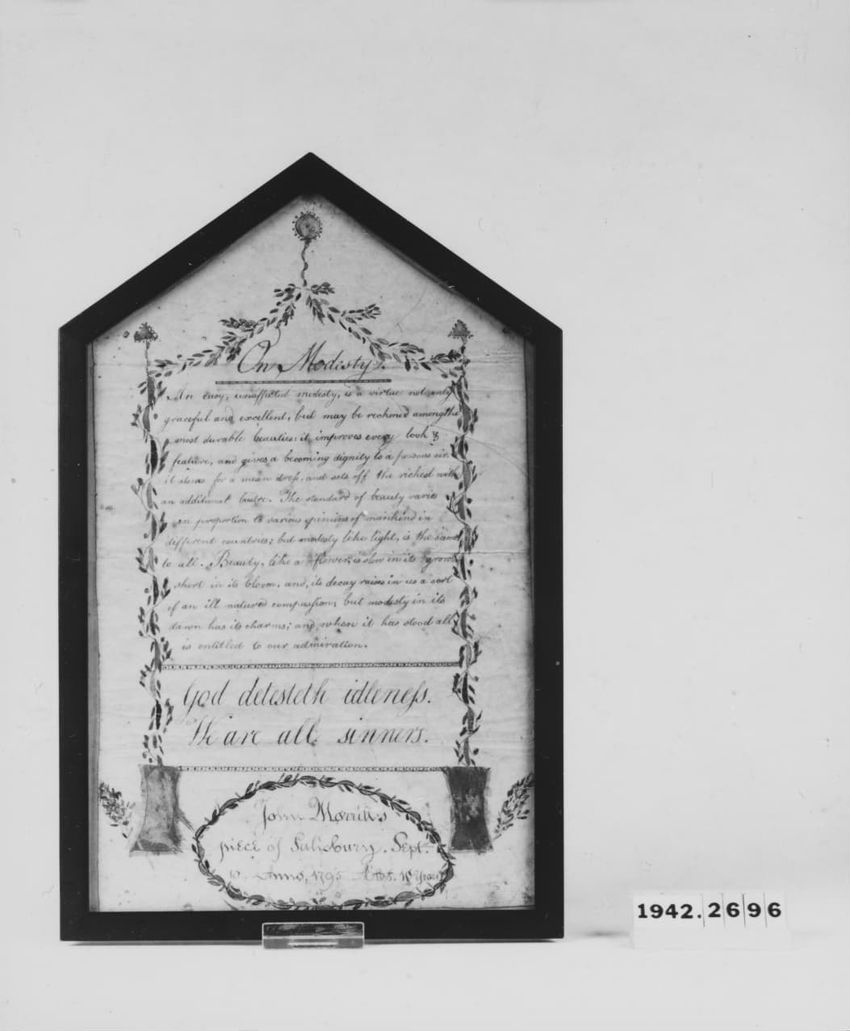 On Modesty.
An easy, unaffected modesty, is a virtue not only
graceful and excellent, but may be reckoned amongst the
most durable beauties: it improves every look &
feature, and gives a becoming dignity to a persons air
it atones for a mean dreſs, and sets off the richest with
an additional lustre. The standard of beauty varies
in proportion to various opinions of mankind in
different countries; but modesty like light, is the same
to all. Beauty, like a flower, is slow in its growth
short in its bloom, and, its decay raises in us a sort
of an ill natured compaſsion; but modesty in its
dawn has its charms; and when it has stood all
is entitled to our admiration.
God detesteth idleneſs.
We are all sinners.
John Morrill's
piece of Salisbury. Sept.
Anno, 1795 Years
1942.2696